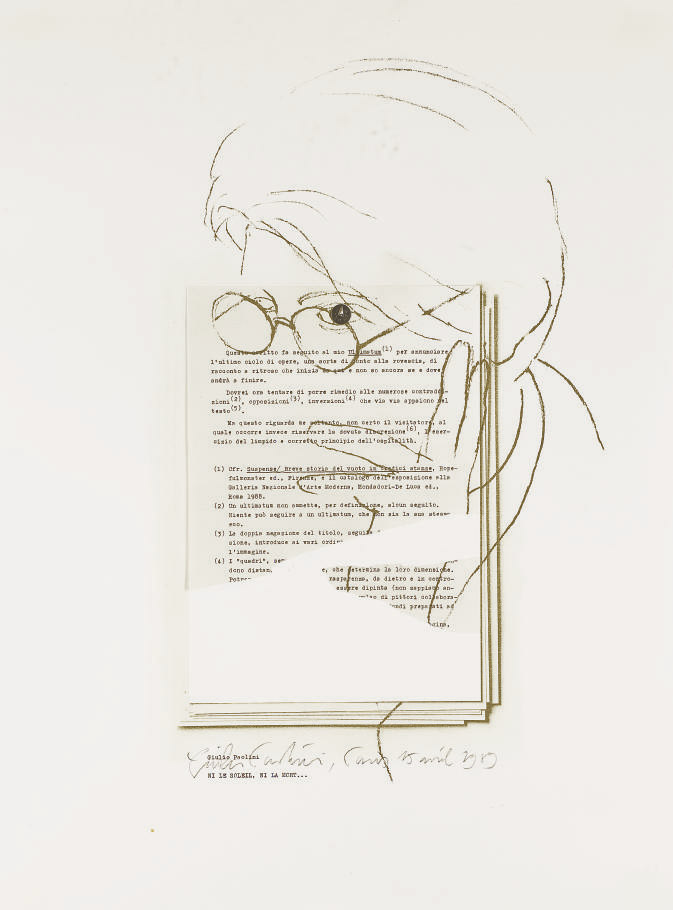 Questo scritto fa seguito al mio Ultimatum(1) per annunciare
l'ultimo ciclo di opere, una sorta di conto alla rovescia, di
racconto a ritroso che inizia da qui e non so ancora se e dove
andrà a finire.
Dovrei ora tentare di porre rimedio alle numerose contraddi-
zioni(2), opposizioni(3), inversioni(4) che via via appaiono nel
testo(5).
Ma questo riguarda me soltanto, non certo il visitatore, al
quale occorre invece riservare la dovuta discrezione(6), l'eser-
cizio del limpido e corretto principio dell'ospitalità.
(1) Cfr. Suspense/ Breve storia del vuoto in tredici stanze, Hope-
fulmonster ed., Firenze, e il catalogo dell'esposizione alla
Galleria Nazionale d'Arte Moderna, Mondadori-De Luca ed.,
Roma 1988.
(2) Un ultimatum non ammette, per definizione, alcun seguito.
Niente può seguire a un ultimatum, che non sia la sua stessa
eco.
(3) La doppia negazione del titolo,
sione, introduce ai vari
l'immagine.
(4) I "quadri",
dono che determina la loro dimensione.
trasparenza, da dietro e in contro-
essere dipinta (non sappiamo an-
di pittori collabora-
preparati ad
Giulio Paolini
Giulio Paolini, Paris 15 avril 1989
NI LE SOLEIL, NI LA MORT...